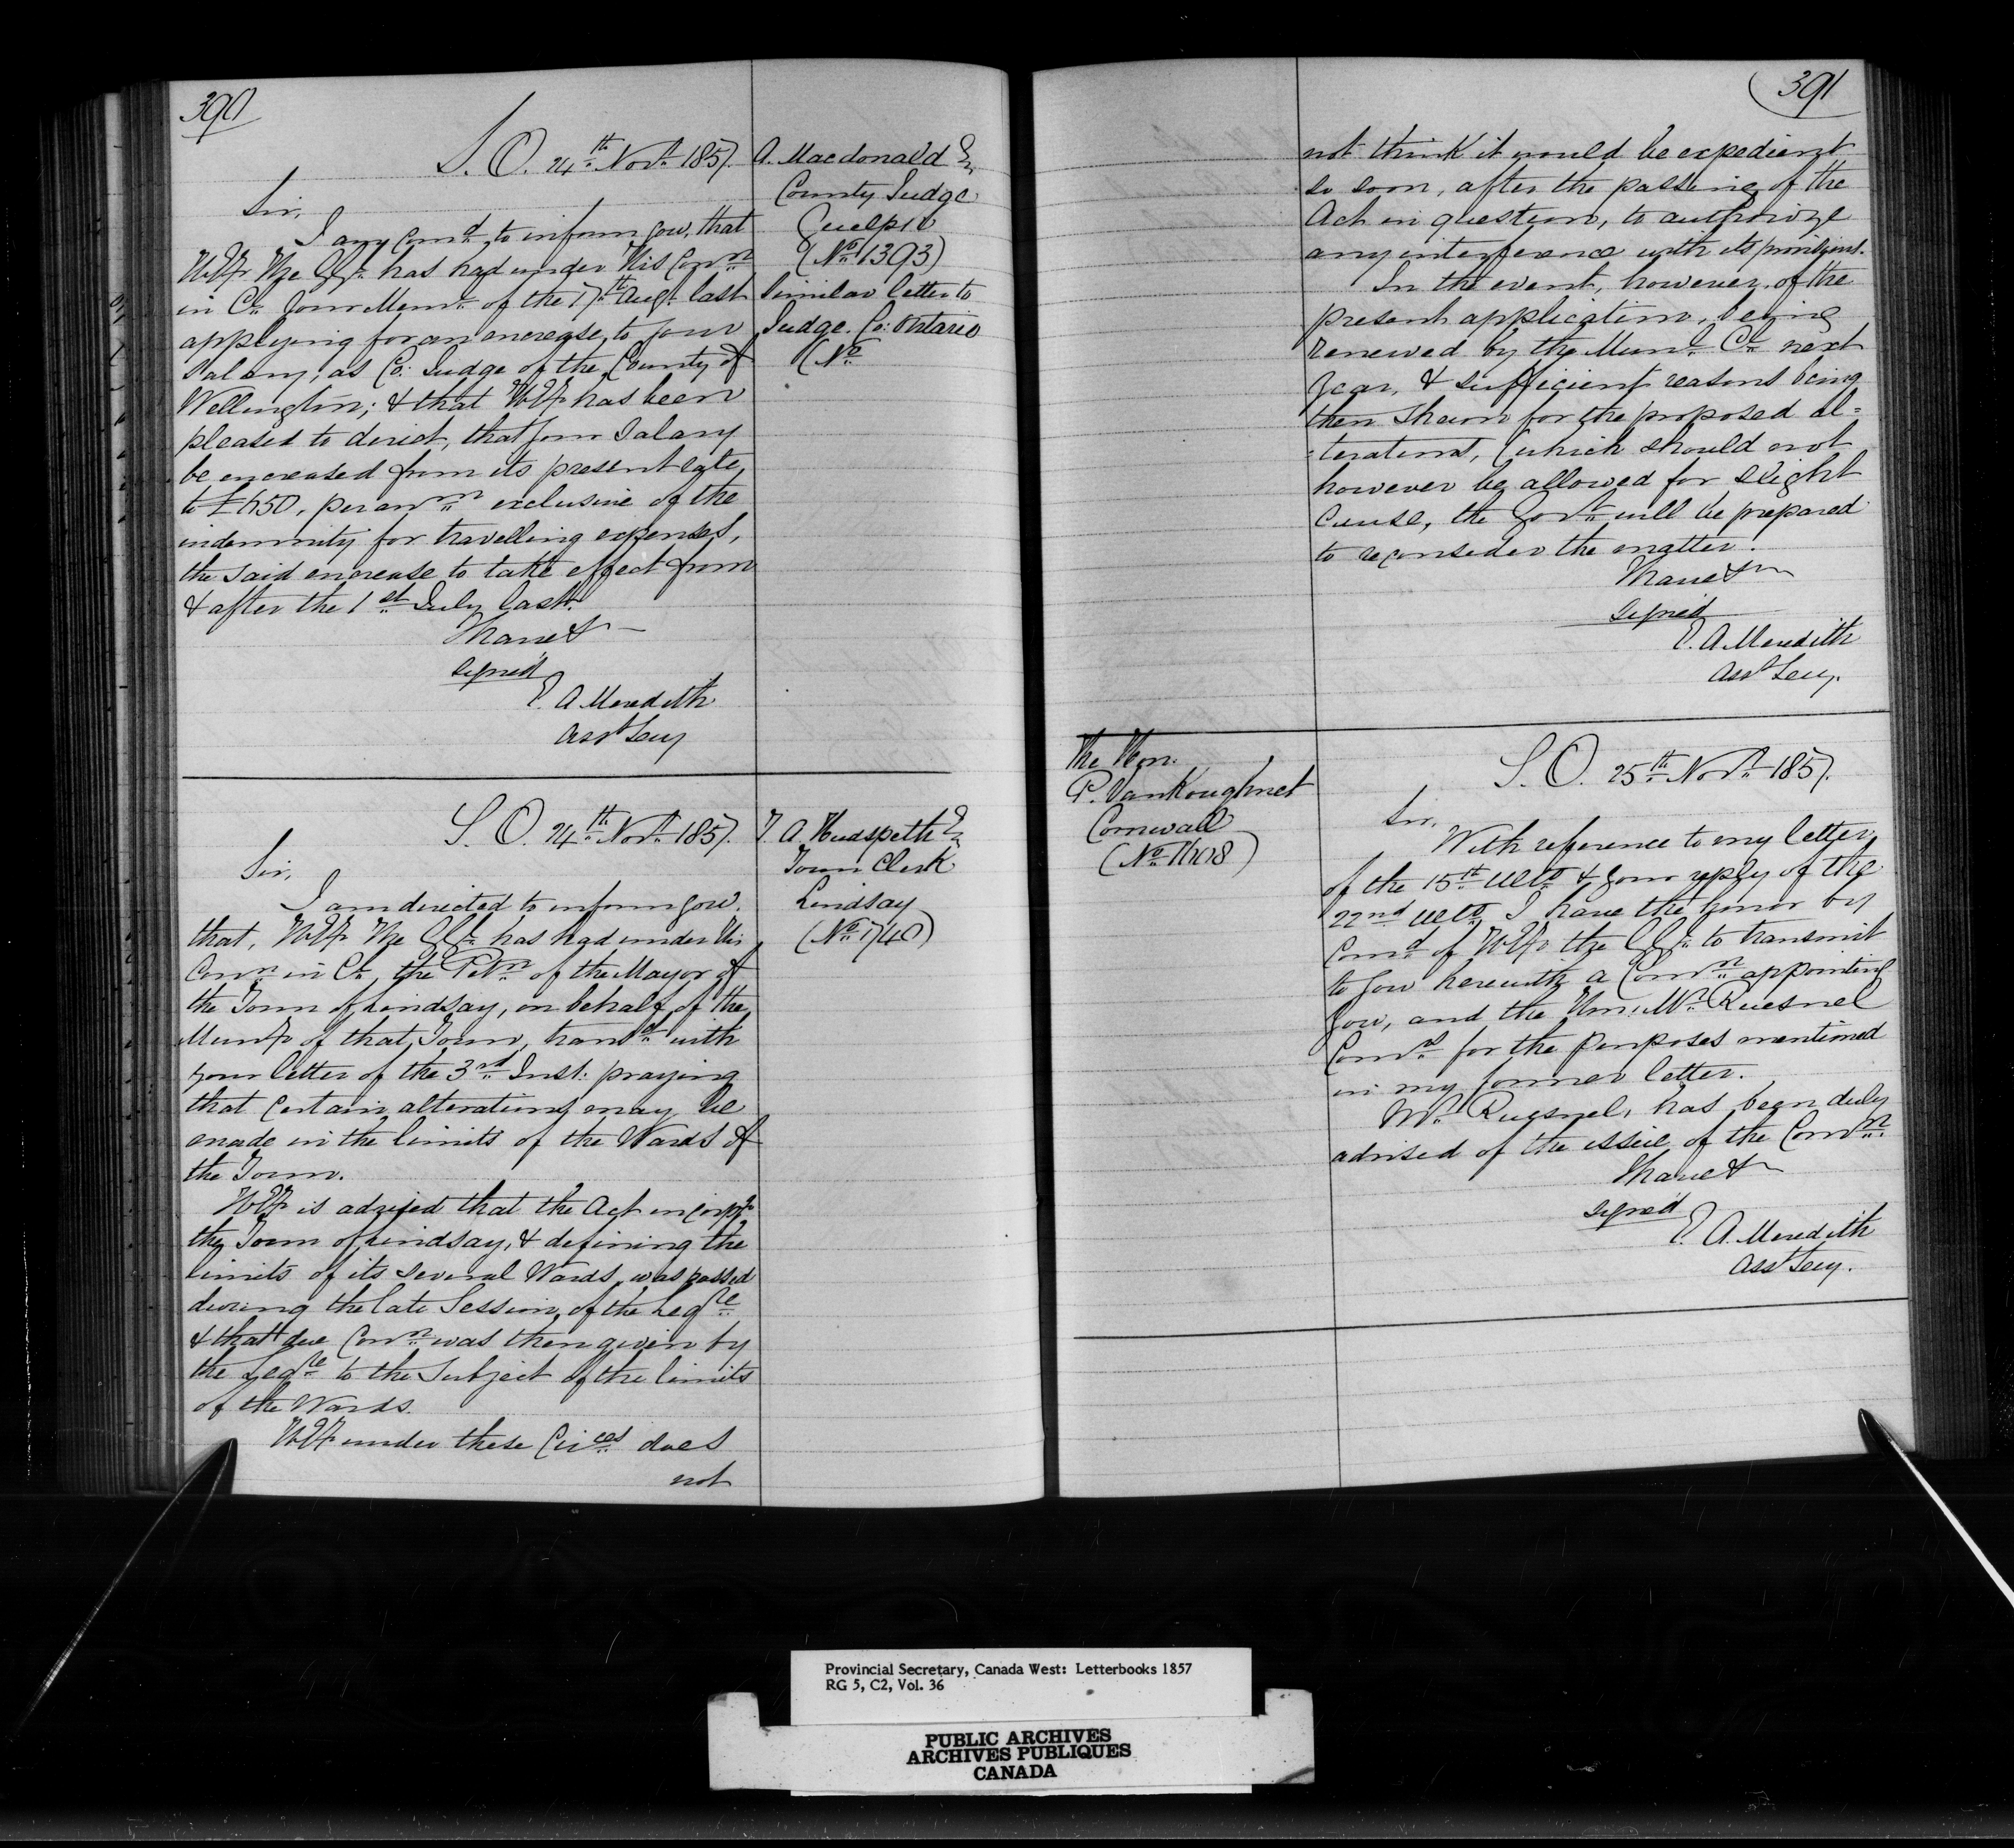 390
S. O. 24th Novr. 1857.
A. Macdonald Esq
County Judge
Guelph
(No. 1393)
Similar letter to
Judge. Co: Ontario
(No.
Sir,
I am comd. to inform you, that
H.E. the G.G. has had under His Conn.
in Cl. your Meml. of the 17th Augt. last
applying for an encrease, to your
Salary; as Co: Judge of the County of
Wellington; & that H.E. has been
pleased to direct, that your Salary
be encreased from its present rate,
to £650, per annm. exclusive of the
indemnity for travelling expenses,
the said encrease to take effect from
& after the 1st. July last.
I have &
signed
E. A. Meredith
Asst Secy
S. O. 24th Novr. 1857.
T. A. Hudspeth Esq
Town Clerk
Lindsay
(No. 1740)
Sir,
I am directed to inform you.
that, H.E. the G.G. has had under His
Conn. in Cl., the Petn. of the Mayor of
the Town of Lindsay, on behalf of the
Munty of that Town, transd. with
your letter of the 3rd. Inst: praying
that certain alterations may be
made in the limits of the Wards of
the Town.
H.E. is advised that the Act incorpg.
the Town of Lindsay, & defining the
limits of its several Wards, was passed
during the late Session, of the Legre.
& that due Conn. was then given by
the Legre. to the subject of the limits
of the Wards.
H.E. under these Circes. does
not
391
not think it would be expedient
so soon, after the passing of the
Act in question, to authorize
any interference with its provisions.
In the event, however, of the
present application, being
renewed by the Munl. Cl. next
year, & sufficient reasons being
then shewn for the proposed al=
=terations, (which should not
however be allowed for slight
cause, the Govt. will be prepared
to reconsider the matter.
I have &
signed
E. A. Meredith
Asst Secy.
The Hon.
P. VanKoughnet
Cornwall
(No. 1608)
S. O. 25th Novr. 1857.
Sir,
With reference to my letter,
of the 15th. Ulto. & your reply of the
22nd Ulto. I have the honor by
Comd. of H.E. the G.G. to transmit
to you herewith a Comn. appointing
you, and the Hon. Mr. Quesnel
Comrs. for the purposes mentioned
in my former letter.
Mr. Quesnel, has been duly
advised of the issue of the Comn.
I have &
signed
E. A. Meredith
Asst Secy.
Provincial Secretary, Canada West: Letterbooks 1857
RG 5, C2, Vol. 36
PUBLIC ARCHIVES
ARCHIVES PUBLIQUES
CANADA